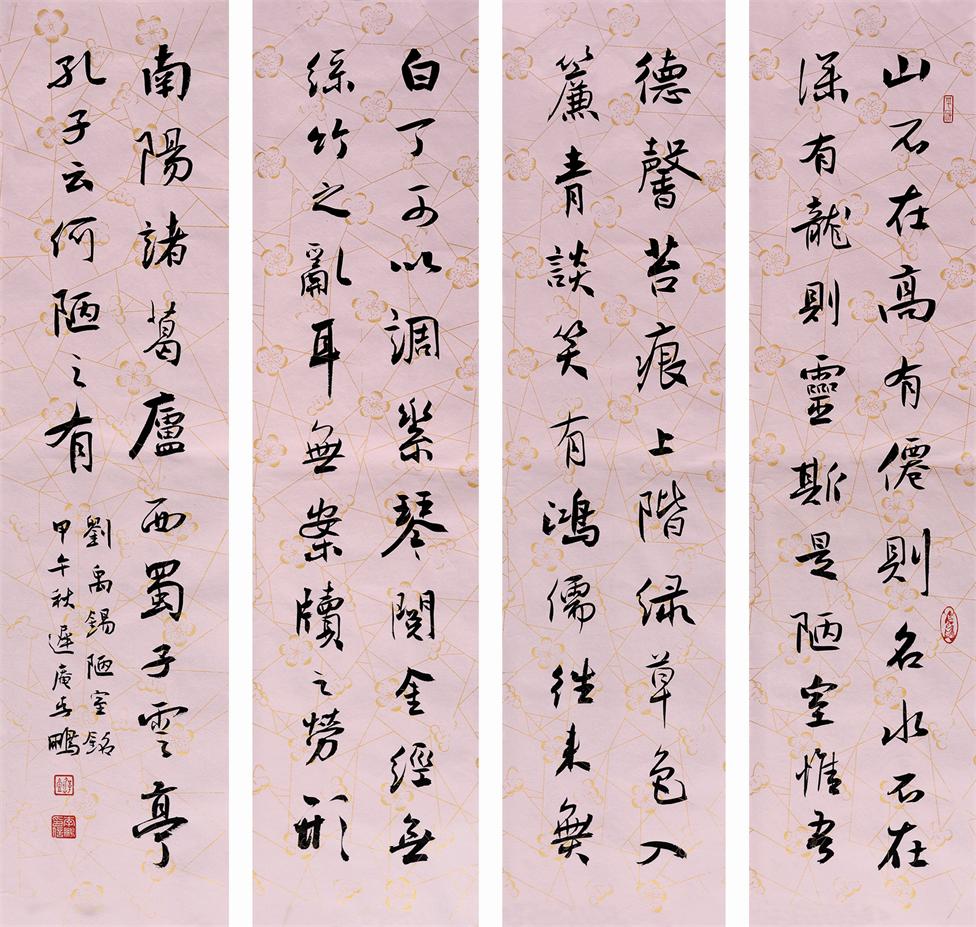 山不在高有僊則名水不在
深有龍則靈斯是陋室惟吾
德馨苔痕上階緑草色入
簾青談笑有鴻儒往來無
白丁可以調素琴閱金經無
絲竹之亂耳無案牘之勞形
南陽諸葛廬西蜀子雲亭
孔子云何陋之有
劉禹錫陋室銘
甲午秋遲庵鵬